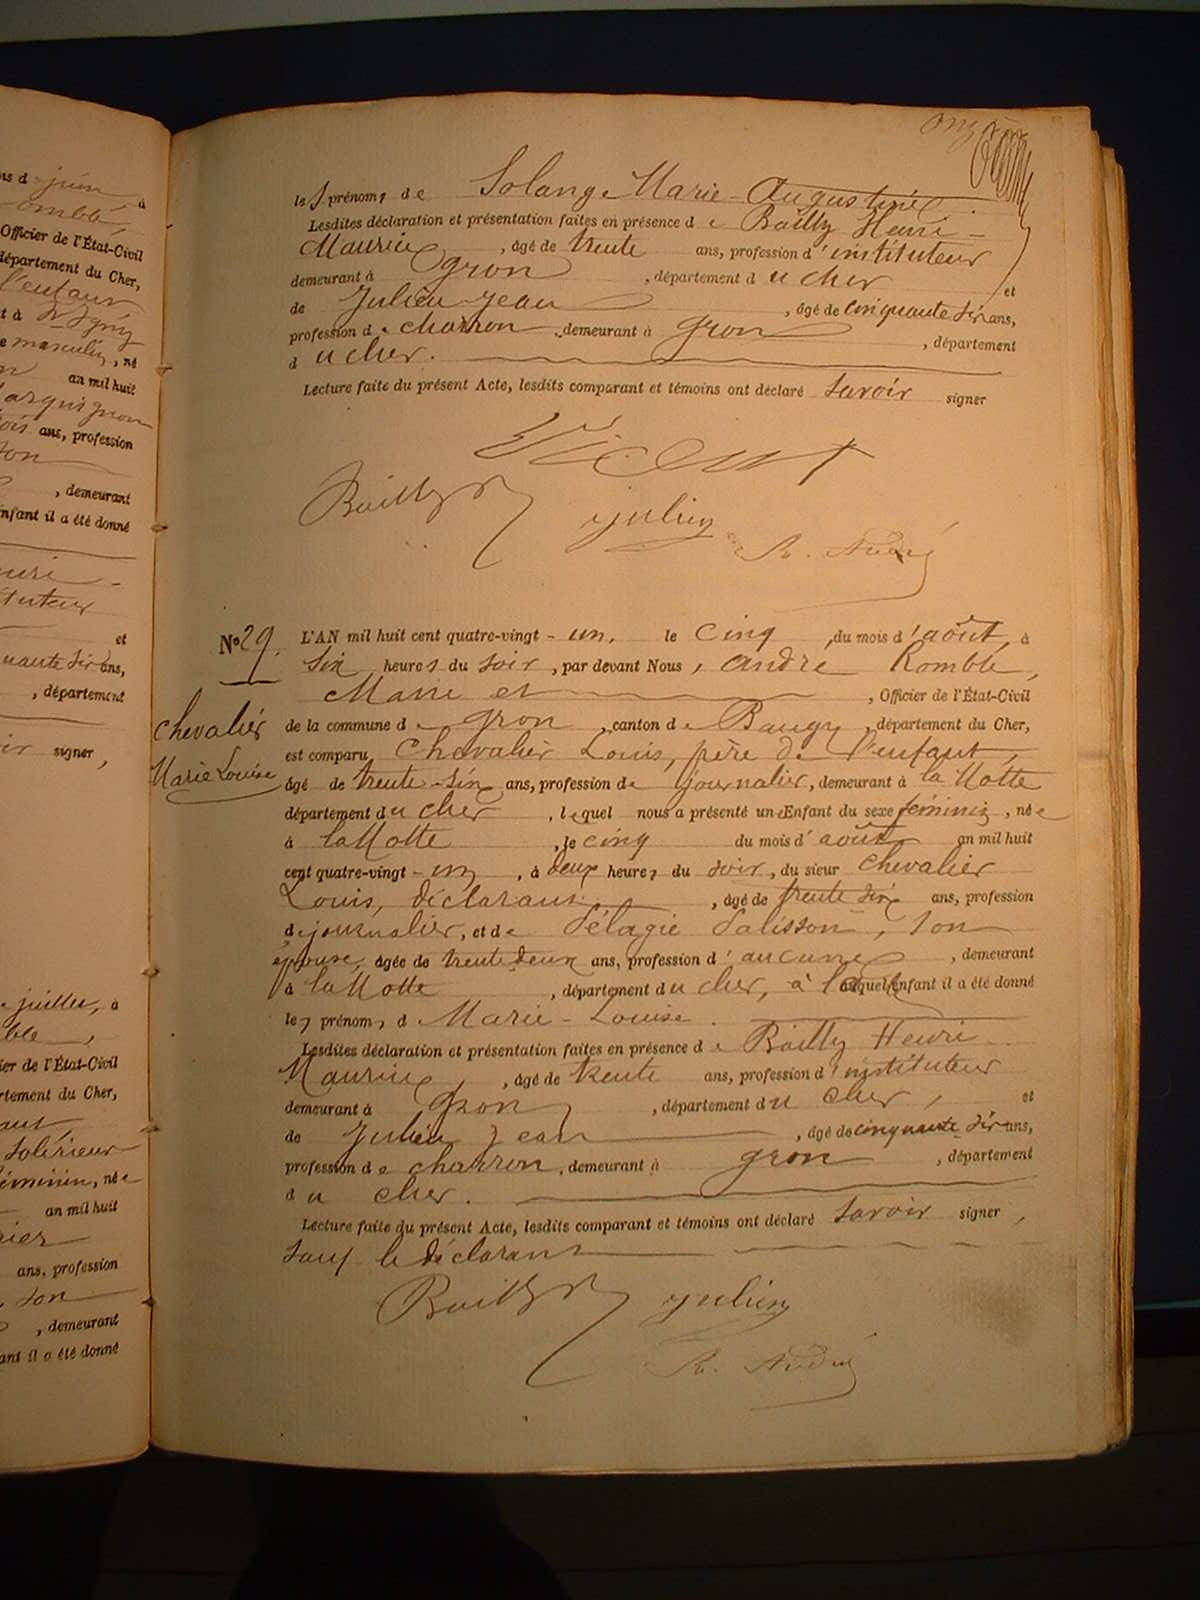 ns d juin à
omblé
Officier de l'État-Civil
département du Cher,
l'enfant
nt à
e masculin, né
an mil huit
ans, profession
son
, demeurant
enfant il a été donné
ituteur
et
ans,
, département
ir signer,
juillet, à
ble,
ier de l'État-Civil
rtement du Cher,
éminin, née
an mil huit
ans, profession
, son
, demeurant
ant il a été donné
les prénoms de Solange Marie-Augustine
Lesdites déclaration et présentation faites en présence de Bailly Henri
Maurice, âgé de trente ans, profession d'instituteur
demeurant à Gron, département du Cher et
de Julien Jean, âgé de cinquante six ans,
profession de charron, demeurant à Gron, département
du Cher.
Lecture faite du présent Acte, lesdits comparant et témoins ont déclaré savoir signer
Bailly Julien
R. André
No 29. L'AN mil huit cent quatre-vingt-un, le cinq, du mois d'août, à
six heures du soir, par devant Nous, André Romble,
Maire et, Officier de l'État-Civil
Chevalier
Marie Louise
de la commune de Gron, canton de Baugy, département du Cher,
est comparu Chevalier Louis, père de l'enfant,
âgé de trente-six ans, profession de journalier, demeurant à la Motte
département du Cher, lequel nous a présenté une Enfant du sexe féminin, née
à la Motte, le cinq du mois d'août an mil huit
cent quatre-vingt-un, à deux heures du soir, du sieur Chevalier
Louis, déclarant, âgé de trente six ans, profession
de journalier, et de Pélagie Salisson, son
épouse, âgée de trente deux ans, profession d'aucune, demeurant
à la Motte, département du Cher, à laquel Enfant il a été donné
les prénoms d Marie-Louise.
Lesdites déclaration et présentation faites en présence de Bailly Henri
Maurice, âgé de trente ans, profession d'instituteur
demeurant à Gron, département du Cher, et
de Julien Jean, âgé de cinquante six ans,
profession de charron, demeurant à Gron, département
du Cher.
Lecture faite du présent Acte, lesdits comparant et témoins ont déclaré savoir signer,
sauf le déclarant
Bailly Julien
R. André